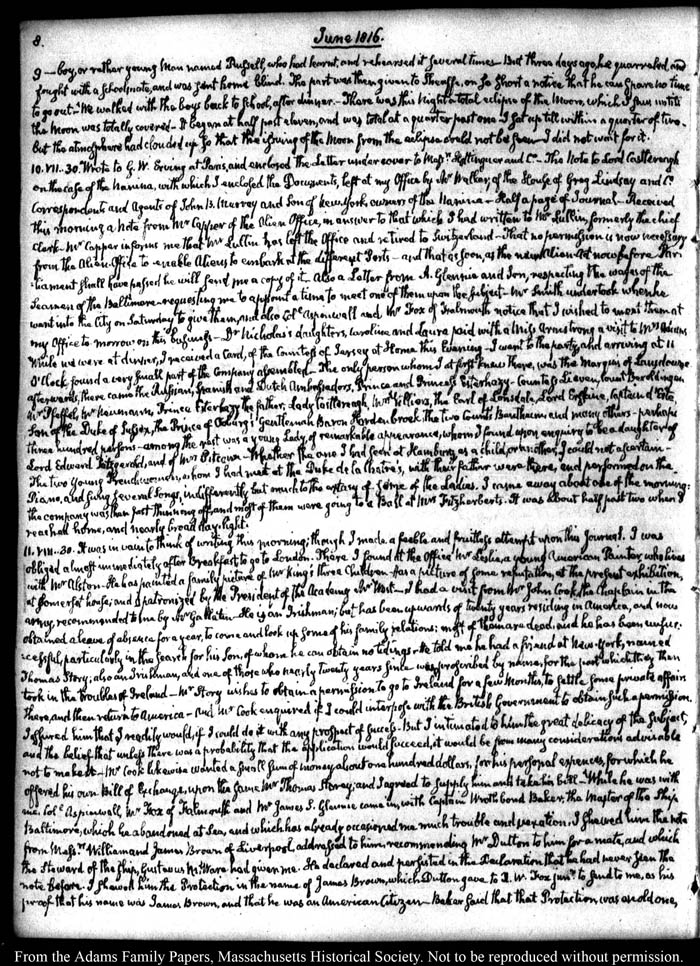 8.
June 1816.
9 — boy, or rather young Man named Russell, who had learnt, and rehearsed it several times. But three days ago, he quarreled, and
fought with a Schoolmate, and was sent home blind. The part was then given to Sheaffe, on so short a notice that he can spare no time
to go out. We walked with the boys back to School, after dinner — There was this Night a total eclipse of the Moon, which I saw until
the Moon was totally covered — It began at half past eleven, and was total at a quarter past one. I sat up till within a quarter of two.
But the atmosphere had clouded up so that the issuing of the Moon from the eclipse could not be seen — I did not wait for it.
10. VII. 30. Wrote to G. W. Erving at Paris, and enclosed the Letter under cover to Messrs. Hottinguer and Co. — This Note to Lord Castlereagh
on the case of the Nanina, with which I enclosed the Documents, left at my Office by Mr Walker, of the House of Gray Lindsay and Co.
Correspondents and Agents of John B. Murray and Son of New York, owners of the Nanina — Half a page of Journal — Received
this morning a Note from Mr Capper of the Alien Office, in answer to that which I had written to Mr Lullin, formerly the chief
Clerk. Mr Capper informs me that Mr Lullin has left the Office and retired to Switzerland — That no permission is now necessary
from the Alien Office to enable Aliens to embark at the different Ports — and that as soon, as the new Alien Act now before Par-
liament shall have passed he will send me a copy of it. Also a Letter from A. Glennie and Son, respecting the wages of the
Seamen of the Baltimore — requesting me to appoint a time to meet one of them upon the subject — Mr Smith undertook when he
went into the City on Saturday to give them, and also Col. Aspinwall and Mr Fox of Falmouth notice that I wished to meet them at
my Office to-morrow on this business — Dr Nicholas's daughters, Caroline and Laura paid with a Miss Armstrong a visit to Mrs Adams.
While we were at dinner, I received a Card, of the Countess of Jersey at Home this Evening — I went to the party, and arriving at 11
O'Clock, found a very small part of the Company assembled — The only person whom I at first knew there, was the Marquis of Lansdowne
afterwards, there came the Russian, Spanish and Dutch Ambassadors, Prince and Princess Esterhazy — Countess Lieven, Count Beroldingen
Mr Pfeffel, Mr Neumann, Prince Esterhazy the father, Lady Castlereagh, Mrs Villiers, the Earl of Lonsdale, Lord Erskine, Captain d'Este,
Son of the Duke of Sussex, the Prince of Coburg's Gentleman Baron Hardenbroek, the two Counts Beuthaim and many others — perhaps
three hundred persons — among the rest was a young Lady of remarkable appearance, whom I found upon enquiry to be a daughter of
Lord Edward Fitzgerald, and of Mrs Pitcairn — Whether the one I had seen at Hamburg as a child, or another, I could not ascertain —
The two Young Frenchwomen, whom I had met at the Duke de la Chatre's, with their father were there, and performed on the
Piano, and sung several Songs, indifferently, but much to the extasy of some of the Ladies. I came away about one of the morning:
the company was then just thinning off, and most of them were going to a Ball at Mrs Fitzherbert's. It was about half past two when I
reached home, and nearly broad daylight.
11. VIII. 30. It was in vain to think of writing this morning; though I made a feeble and fruitless attempt upon this Journal. I was
obliged almost immediately after Breakfast to go to London. There I found at the Office Mr Leslie, a young American Painter, who lives
with Mr Alston. He has painted a family picture of Mr King's three Children — Has a picture of some reputation, at the present exhibition,
at Somerset house, and is patronized by the President of the Academy Mr West — I had a visit from Mr John Cook, the Chaplain in the
army, recommended to me by Mr Gallatin — He is an Irishman; but has been upwards of twenty years residing in America, and now
obtained a leave of absence for a year, to come and look up some of his family relations; most of whom are dead, and he has been unsuc-
cessful, particularly in the search for his Son, of whom he can obtain no tidings — He told me he had a friend at New-York, named
Thomas Story; also an Irishman, and one of those who nearly twenty years since was proscribed by name, for the part which they then
took in the troubles of Ireland — Mr Story wishes to obtain a permission to go to Ireland for a few Months, to settle some private affairs
there, and then return to America — And Mr Cook enquired if I could interpose with the British Government to obtain such a permission.
I assured him that I readily would, if I could do it with any prospect of success. But I intimated to him the great delicacy of the subject,
and the belief that unless there was a probability that the application would succeed, it would be from many considerations advisable
not to make it — Mr Cook likewise wanted a small sum of money about one hundred dollars, for his personal expences, for which he
offered his own Bill of Exchange, upon the same Mr Thomas Storey; and I agreed to supply him and take his bill — While he was with
me, Col. Aspinwall, Mr Fox of Falmouth and Mr James S. Glennie came in, with Captain Wrothbond Baker, the Master of the Ship
Baltimore, which he abandoned at Sea, and which has already occasioned me much trouble and vexation. I shewed him the note
from Messrs. William and James Brown of Liverpool, addressed to him, recommending Mr Dutton to him for a mate, and which
the Steward of the Ship, Gustavus M. Ware had given me. He declared and persisted in the Declaration that he had never seen the
note before. I shewed him the Protection in the name of James Brown, which Dutton gave to A. W. Fox junr. to send to me, as his
proof that his name was James Brown, and that he was an American Citizen — Baker said that that Protection was an old one,
From the Adams Family Papers, Massachusetts Historical Society. Not to be reproduced without permission.